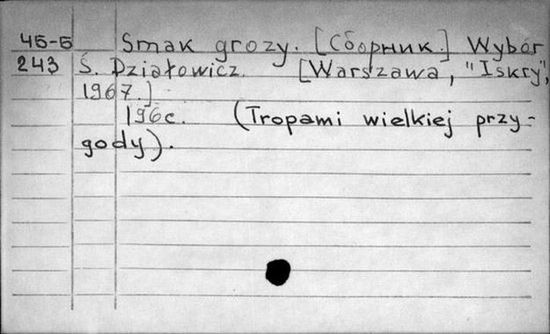 45-Б Smak grozy. [Сборник.] Wybór
243 Ś. Działowicz. [Warszawa, "Iskry",
1967.]
196с. (Tropami wielkiej przy-
gody).